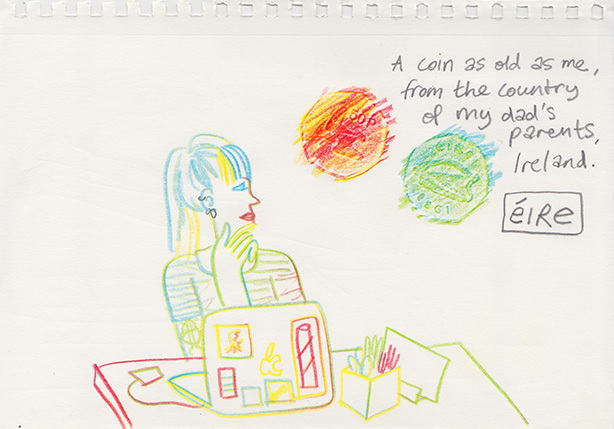 A coin as old as me,
from the country
of my dad's
parents,
Ireland.
éIRe